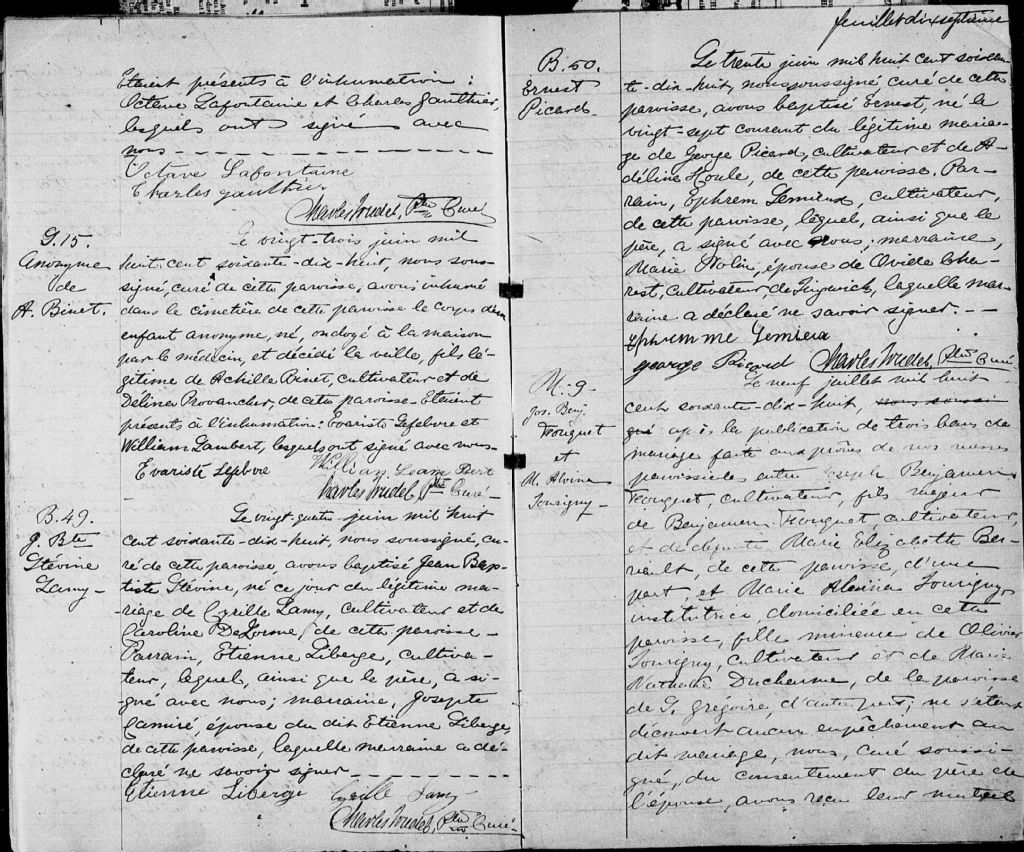 Etaient présents à l'inhumation :
Octave Lafontaine et Charles Gauthier,
lesquels ont signé avec
nous
Octave Lafontaine
Charles gauthier
Charles Trudel, Ptre Curé
S. 15.
Anonyme
de
A. Binet.
Le vingt-trois juin mil
huit cent soixante-dix-huit, nous sous-
signé, curé de cette paroisse, avons inhumé
dans le cimetière de cette paroisse le corps d'un
enfant anonyme, né, ondoyé à la maison
par le médecin, et décédé la veille, fils lé-
gitime de Achille Binet, cultivateur et de
Délina Provancher, de cette paroisse. Etaient
présents à l'inhumation : Evariste Lefebvre et
William Lambert, lesquels ont signé avec nous.
Evariste Lefebvre William Lambert
Charles Trudel Ptre Curé
B. 49.
J. Bte
Stévine
Lamy
Le vingt-quatre juin mil huit
cent soixante-dix-huit, nous soussigné, cu-
ré de cette paroisse, avons baptisé Jean Bap-
tiste Stévine, né ce jour du légitime ma-
riage de Cyrille Lamy, cultivateur et de
Caroline DeLorme, de cette paroisse -
Parrain, Etienne Liberge, cultiva-
teur, lequel, ainsi que le père, a si-
gné avec nous ; marraine, Josepte
Camiré, épouse du dit Etienne Liberge,
de cette paroisse, laquelle marraine a dé-
claré ne savoir signer
Etienne Liberge Cyrille Lamy
Charles Trudel, Ptre Curé
feuillet dix septième
B. 50.
Ernest
Picard
Le trente juin mil huit cent soixan-
te-dix-huit, nous soussigné curé de cette
paroisse, avons baptisé Ernest, né le
vingt-sept courant du légitime maria-
ge de George Picard, cultivateur et de A-
déline Houle, de cette paroisse. Par-
rain, Ephrem Lemieux, cultivateur,
de cette paroisse, lequel, ainsi que le
père, a signé avec nous ; marraine,
Marie Nolin, épouse de Ovide Cha-
rest, cultivateur, de Tingwick, laquelle mar-
raine a déclaré ne savoir signer. - -
Ephremme Lemieux
george Picard Charles Trudel, Ptre Curé
M. 9
Jos. Benj.
Fouquet
et
M. Alvina
Tourigny
Le neuf juillet mil huit
cent soixante-dix-huit, nous soussi
gné après la publication de trois bans de
mariage faite aux prônes de nos messes
paroissiales entre Joseph Benjamin
Fouquet, cultivateur, fils majeur
de Benjamin Fouquet, cultivateur,
et de défunte Marie Elizabeth Ber-
rault, de cette paroisse, d'une
part, et Marie Alvina Tourigny,
institutrice, domiciliée en cette
paroisse, fille mineure de Olivier
Tourigny, cultivateur et de Marie
Nathalie Ducharme, de la paroisse
de St. Grégoire, d'autre part ; ne s'étant
découvert aucun empêchement au
dit mariage, nous, curé soussi-
gné, du consentement du père de
l'épouse, avons reçu leur mutuel